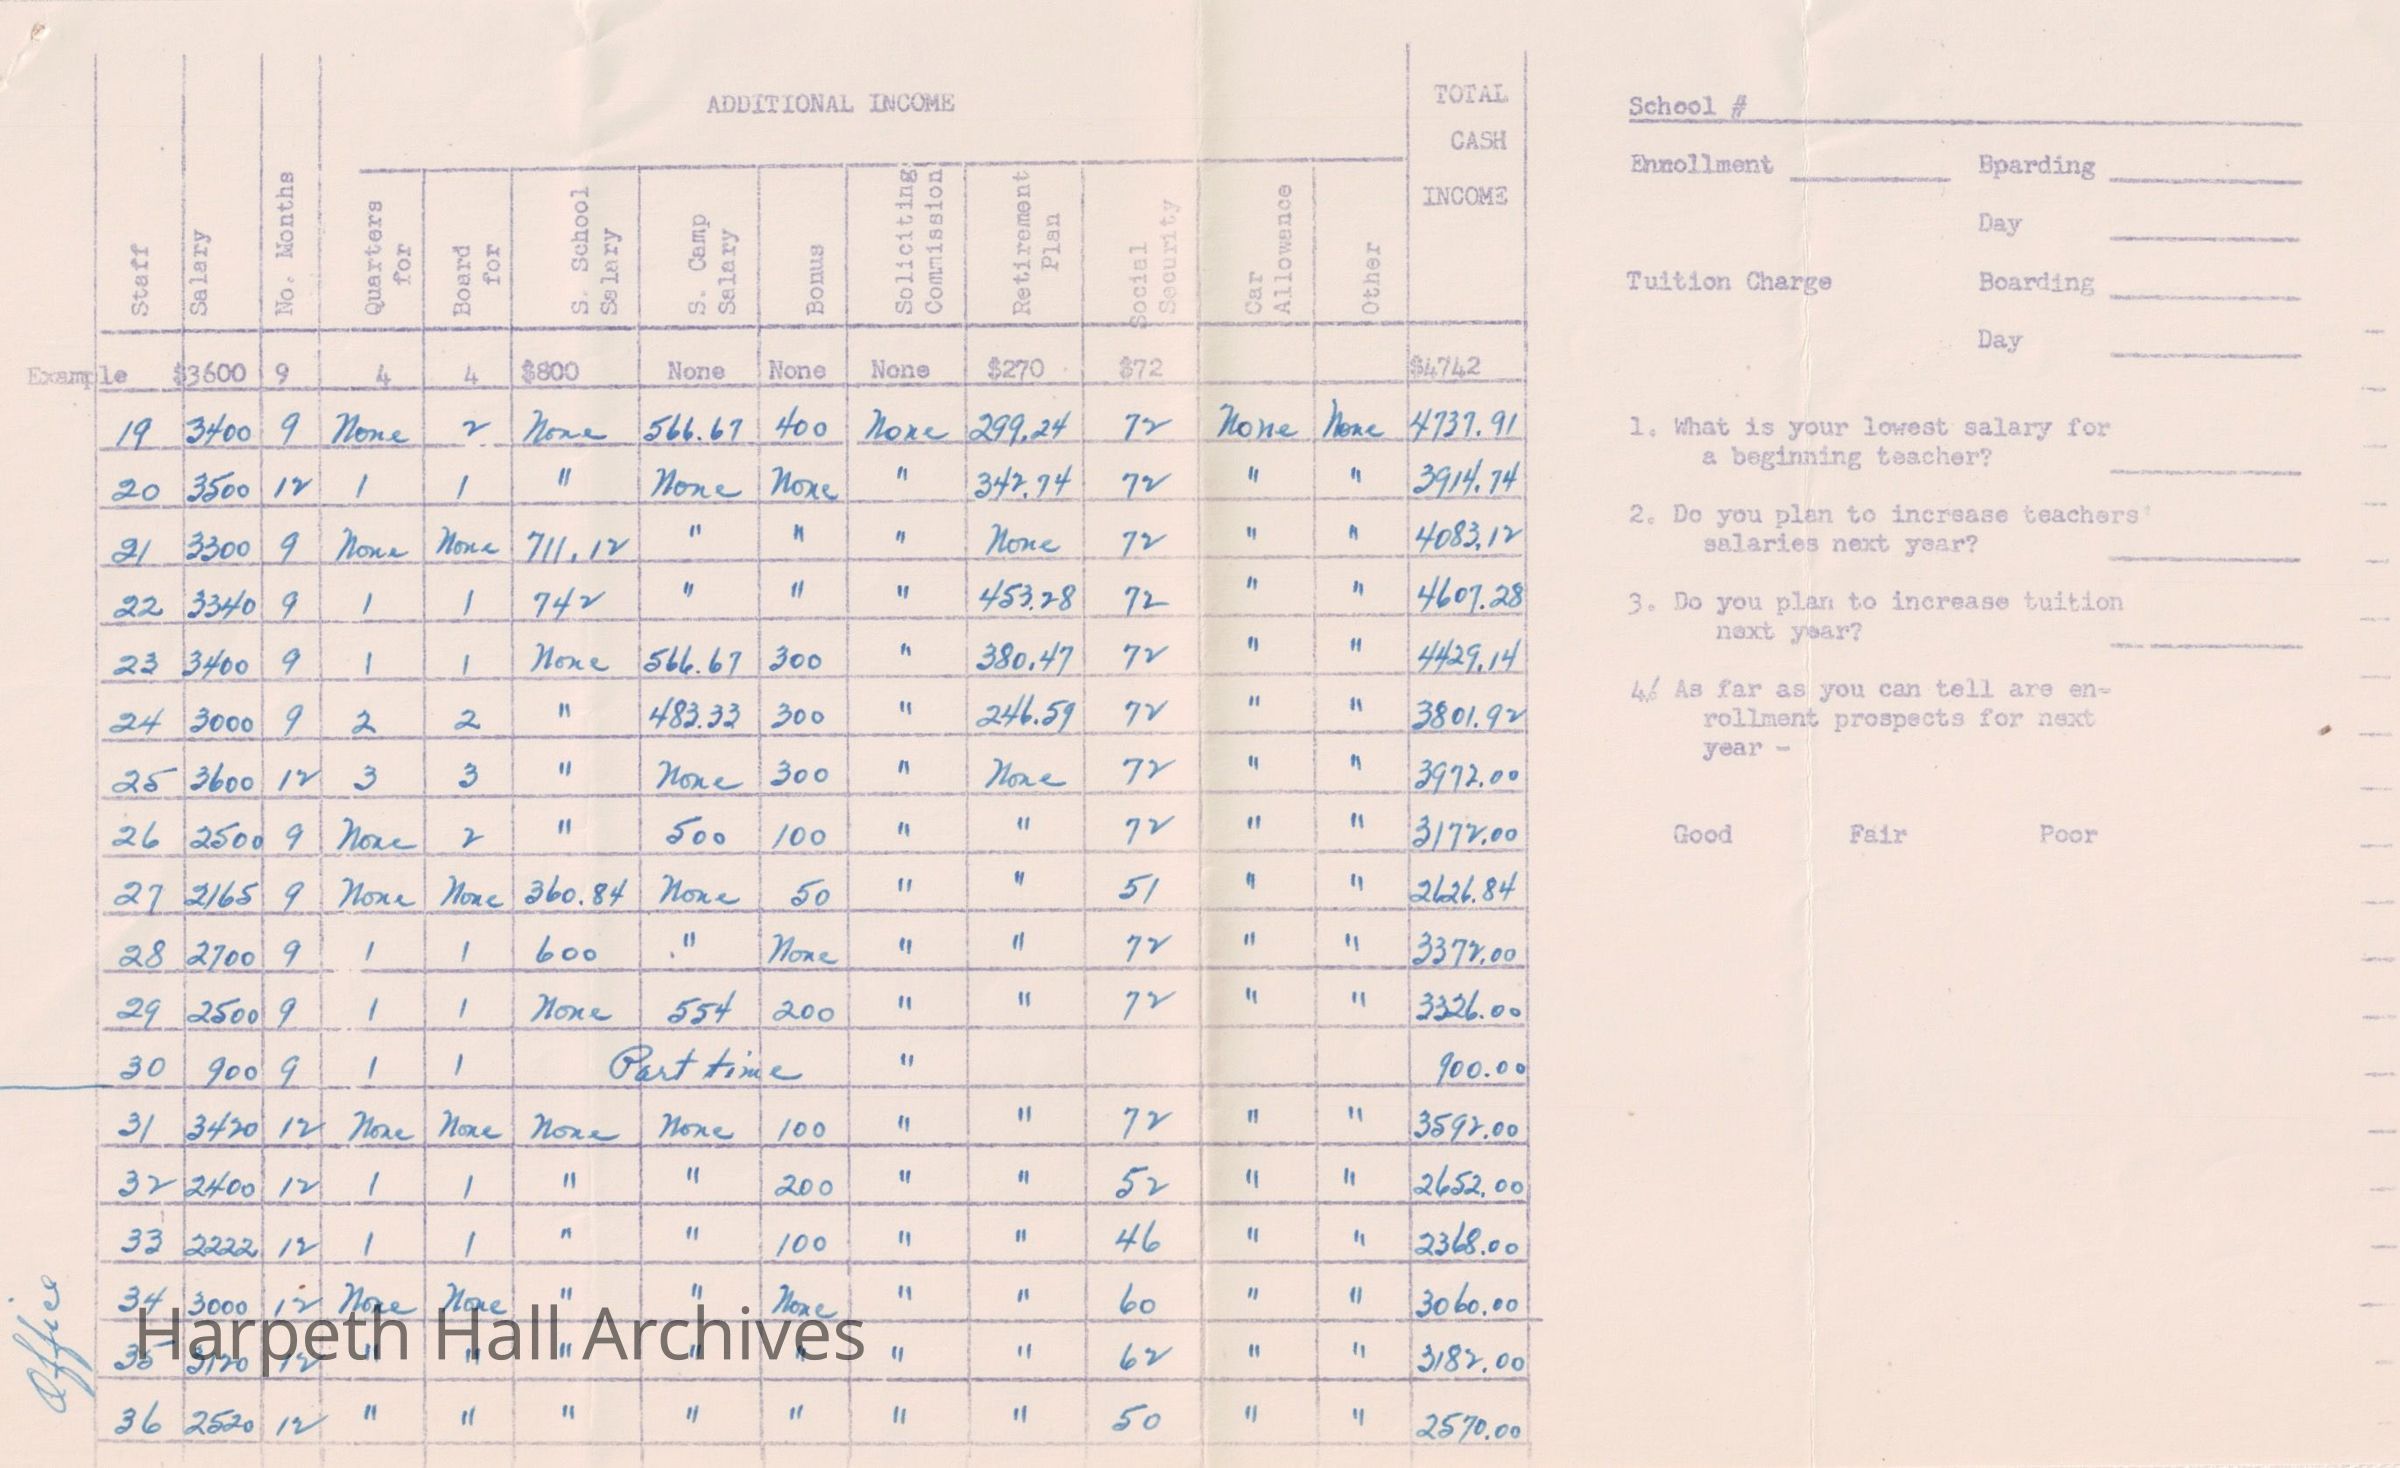 ADDITIONAL INCOME
TOTAL CASH INCOME
Staff Salary No. Months Quarters for Board for S. School Salary S. Camp Salary Bonus Soliciting Commission Retirement Plan Social Security Car Allowance Other
Example $3600 9 4 4 $800 None None None $270 $72 $4742
19 3400 9 None 2 None 566.67 400 None 299.24 72 None None 4737.91
20 3500 12 1 1 " None None " 342.74 72 " " 3914.74
21 3300 9 None None 711.12 " " " None 72 " " 4083.12
22 3340 9 1 1 742 " " " 453.28 72 " " 4607.28
23 3400 9 1 1 None 566.67 300 " 380.47 72 " " 4429.14
24 3000 9 2 2 " 483.33 300 " 246.59 72 " " 3801.92
25 3600 12 3 3 " None 300 " None 72 " " 3972.00
26 2500 9 None 2 " 500 100 " " 72 " " 3172.00
27 2165 9 None None 360.84 None 50 " " 51 " " 2626.84
28 2700 9 1 1 600 " None " " 72 " " 3372.00
29 2500 9 1 1 None 554 200 " " 72 " " 3326.00
30 900 9 1 1 Part time " 900.00
31 3420 12 None None None None 100 " " 72 " " 3592.00
32 2400 12 1 1 " " 200 " " 52 " " 2652.00
33 2222 12 1 1 " " 100 " " 46 " " 2368.00
34 3000 12 None None " " None " " 60 " " 3060.00
35 3120 12 " " " " " " " 62 " " 3182.00
36 2520 12 " " " " " " " 50 " " 2570.00
Office
Harpeth Hall Archives
School #
Ennollment Bparding
Day
Tuition Charge Boarding
Day
1. What is your lowest salary for
a beginning teacher?
2. Do you plan to increase teachers'
salaries next year?
3. Do you plan to increase tuition
next year?
4. As far as you can tell are en-
rollment prospects for next
year -
Good Fair Poor